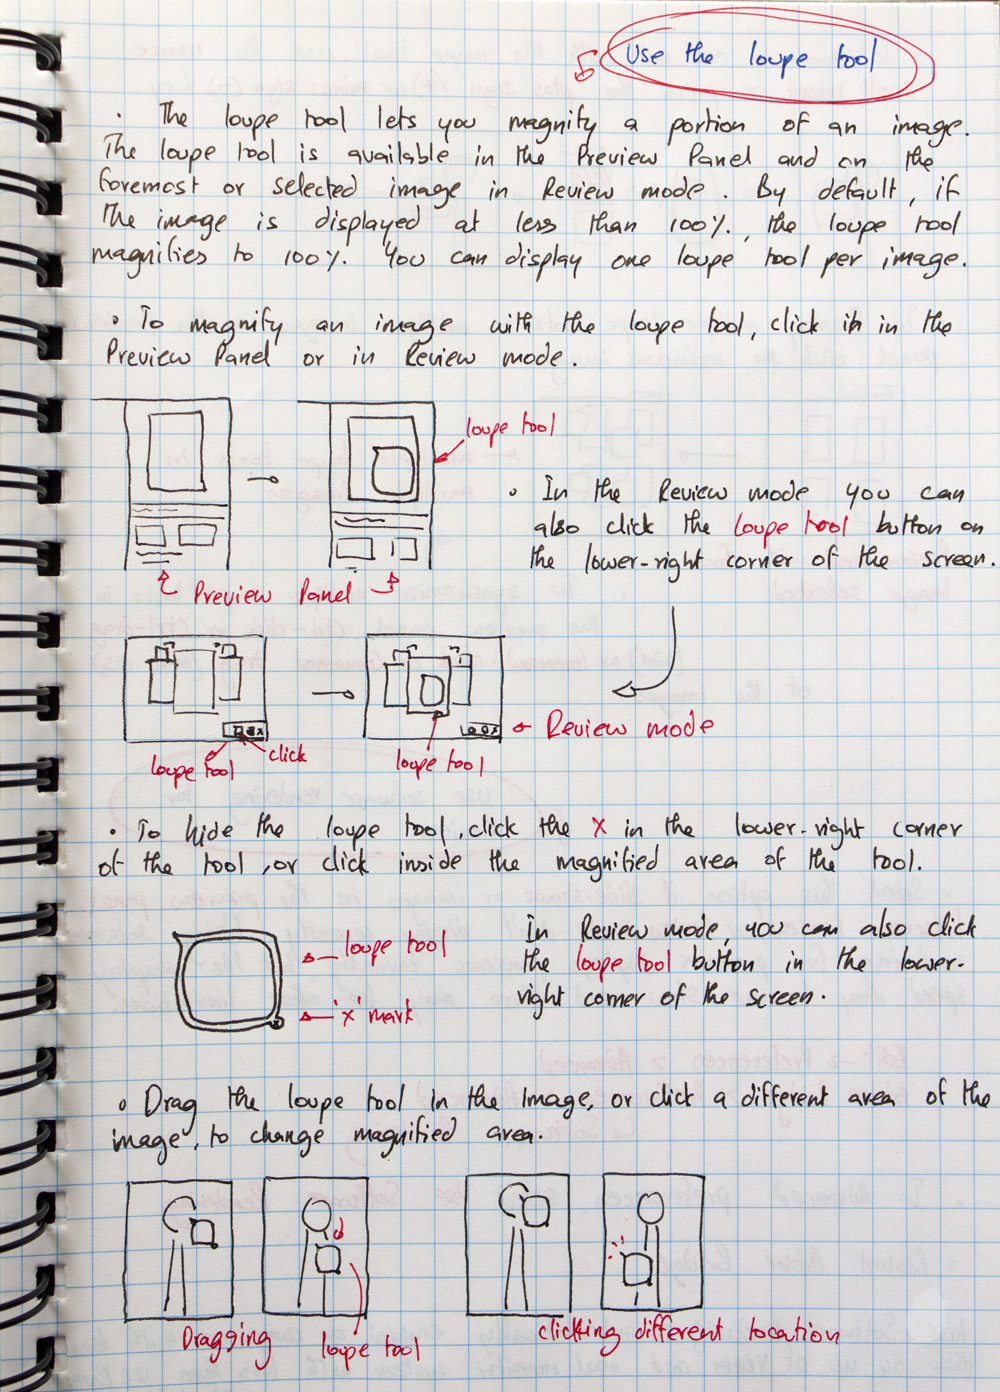 Use the loupe tool
• The loupe tool lets you magnify a portion of an image.
The loupe tool is available in the Preview Panel and on the
foremost or selected image in Review mode. By default, if
the image is displayed at less than 100%, the loupe tool
magnifies to 100%. You can display one loupe tool per image.
• To magnify an image with the loupe tool, click in in the
Preview Panel or in Review mode.
loupe tool
Preview Panel
• In the Review mode you can
also click the loupe tool button on
the lower-right corner of the screen.
Review mode
loupe tool
click
loupe tool
• To hide the loupe tool, click the X in the lower-right corner
of the tool, or click inside the magnified area of the tool.
loupe tool
'x' mark
In Review mode, you can also click
the loupe tool button in the lower-
right corner of the screen.
• Drag the loupe tool in the image, or click a different area of the
image, to change magnified area.
Dragging
loupe tool
clicking different location